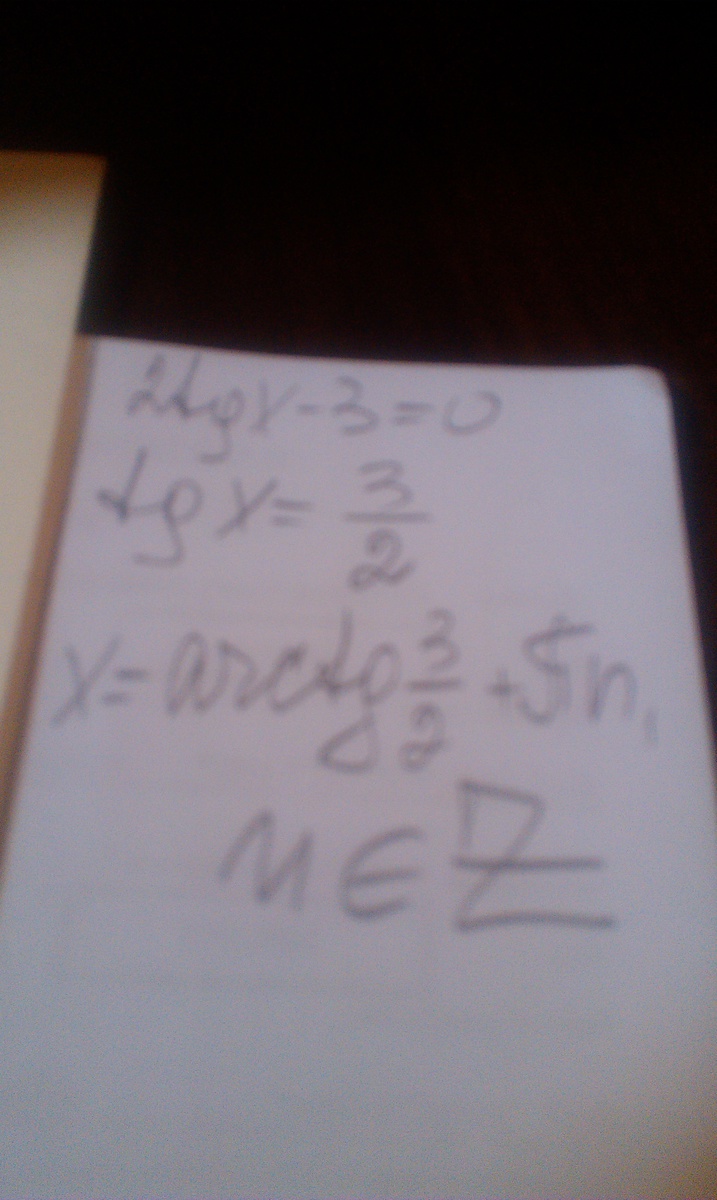 2tgx-3=0
tgx=3/2
x=arctg 3/2 +πn,
n∈Z